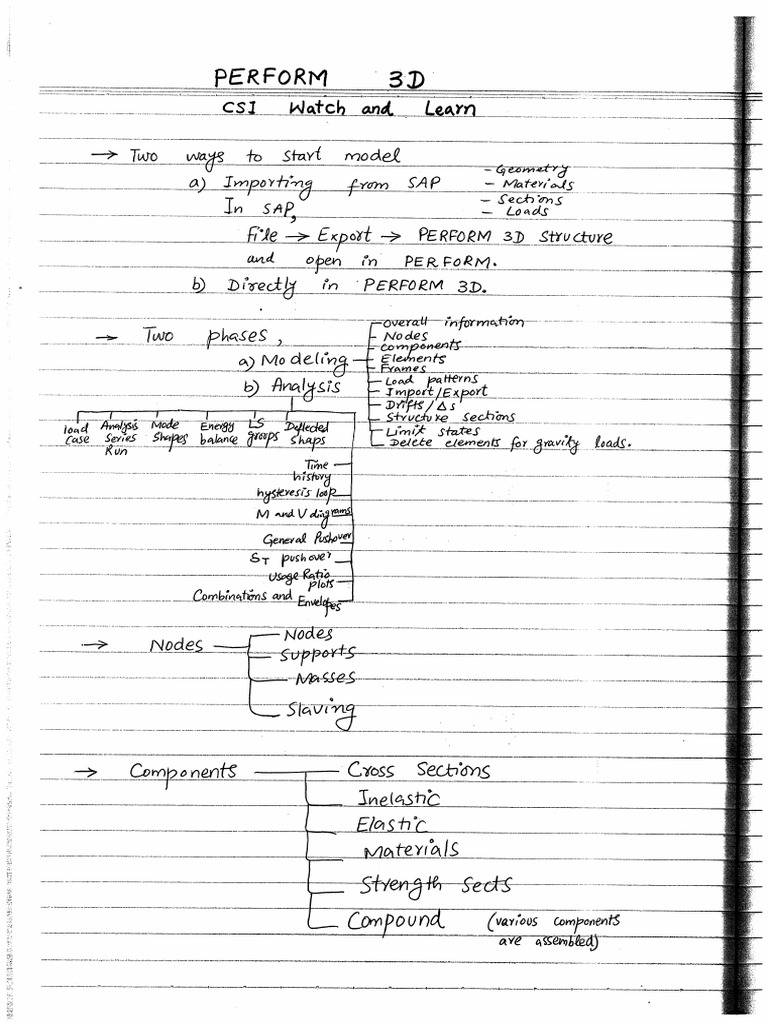 PERFORM 3D
CSI Watch and Learn
→ Two ways to start model
a) Importing from SAP
- Geometry
- Materials
- Sections
- Loads
In SAP,
File → Export → PERFORM 3D Structure
and open in PERFORM.
b) Directly in PERFORM 3D.
→ Two phases,
a) Modeling
Overall information
Nodes
Components
Elements
Frames
Load patterns
Import/Export
Drifts/Δs
Structure sections
Limit states
Delete elements for gravity loads.
b) Analysis
load case
Analysis Series Run
Mode Shapes
Energy balance
LS groups
Deflected shaps
Time history
hysteresis loop
M and V diagrams
General Pushover
ST pushover
Usage Ratio plots
Combinations and Envelopes
→ Nodes
Nodes
Supports
Masses
Slaving
→ Components
Cross Sections
Inelastic
Elastic
Materials
Strength Sects
Compound (various components
are assembled)